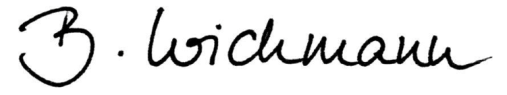 B. Wichmann